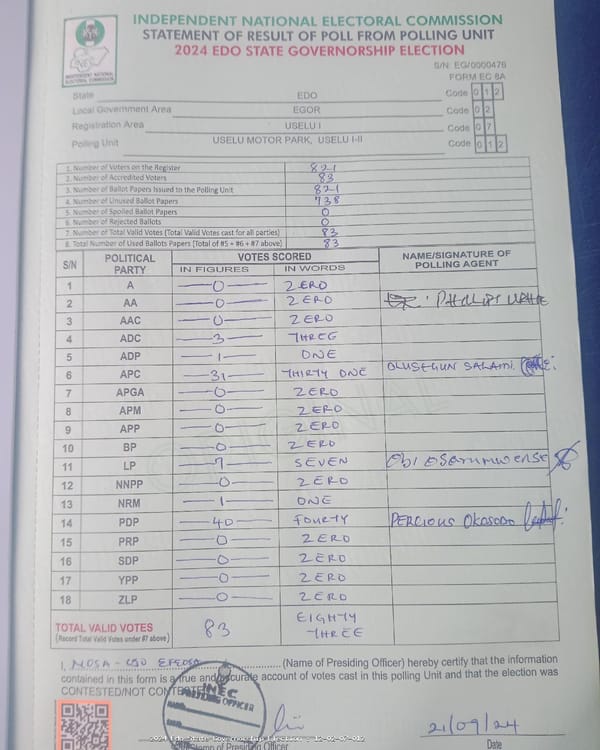 INDEPENDENT NATIONAL ELECTORAL COMMISSION
STATEMENT OF RESULT OF POLL FROM POLLING UNIT
2024 EDO STATE GOVERNORSHIP ELECTION
S/N: EG/0000476
FORM EC 8A
INEC
INDEPENDENT NATIONAL ELECTORAL COMMISSION
State EDO Code 0 1 2
Local Government Area EGOR Code 0 2
Registration Area USELU I Code 0 7
Polling Unit USELU MOTOR PARK, USELU I-II Code 0 1 2
1. Number of Voters on the Register 821
2. Number of Accredited Voters 83
3. Number of Ballot Papers Issued to the Polling Unit 821
4. Number of Unused Ballot Papers 738
5. Number of Spoiled Ballot Papers 0
6. Number of Rejected Ballots 0
7. Number of Total Valid Votes (Total Valid Votes cast for all parties) 83
8. Total Number of Used Ballots Papers (Total of #5 + #6 + #7 above) 83
S/N POLITICAL PARTY VOTES SCORED NAME/SIGNATURE OF POLLING AGENT
IN FIGURES IN WORDS
1 A 0 ZERO
2 AA 0 ZERO PHILLIPS
3 AAC 0 ZERO
4 ADC 3 THREE
5 ADP 1 ONE
6 APC 31 THIRTY ONE OLUSEGUN SALAMI
7 APGA 0 ZERO
8 APM 0 ZERO
9 APP 0 ZERO
10 BP 0 ZERO
11 LP 7 SEVEN Obi Osarumwense
12 NNPP 0 ZERO
13 NRM 1 ONE
14 PDP 40 FOURTY PERCIOUS OKOSODO
15 PRP 0 ZERO
16 SDP 0 ZERO
17 YPP 0 ZERO
18 ZLP 0 ZERO
TOTAL VALID VOTES 83 EIGHTY THREE
(Record Total Valid Votes under #7 above)
I, EFEOSA (Name of Presiding Officer) hereby certify that the information
contained in this form is a true and accurate account of votes cast in this polling Unit and that the election was
CONTESTED/NOT CONTESTED
INEC
PRESIDING OFFICER
21/09/24
of Presiding Officer
Date